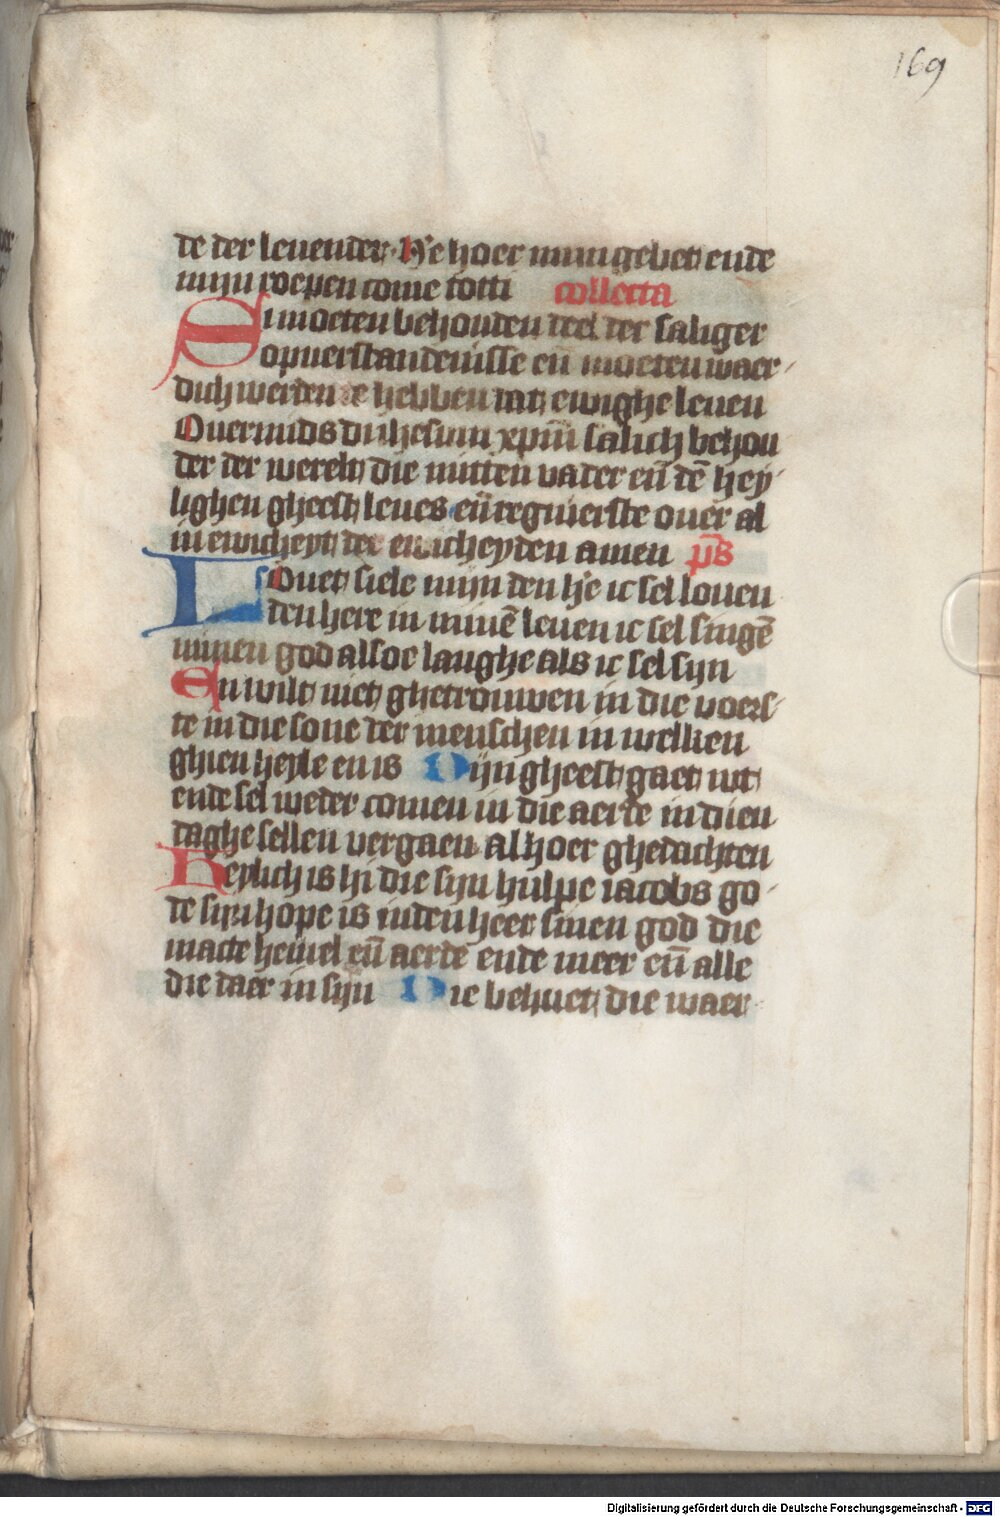 169
de der leuender · He hoer mijn gebet ende
mijn roepen come totti collecta
Si moeten behouden deel der saliger
opuerstandenisse eñ moeten waer-
dich werden te hebben dat ewighe leuen
Ouermids di ihesum xpm̄ salich behou
der der werelt die mitten vader eñ dē hey-
lighen gheest leues eñ regnierste ouer al
in ewicheyt der ewicheyden amen p̄s
Louet siele mijn den he ic sel louen
den here in minē leuen ic sel singē
minen god alsoe langhe als ic sel sijn
En wilt niet ghetrouwen in die voers-
te in die sone der menschen in welken
ghien heyle en is Sijn gheest gaet wt
ende sel weder comen in die aerde in dien
daghe sellen vergaen al hoer ghedachten
Heylich is hi die sijn hulpe iacobs go-
de sijn hope is in den heer sinen god die
macte hemel eñ aerde ende meer eñ alle
die daer in sijn Die behuet die waer-
Digitalisierung gefördert durch die Deutsche Forschungsgemeinschaft - DFG